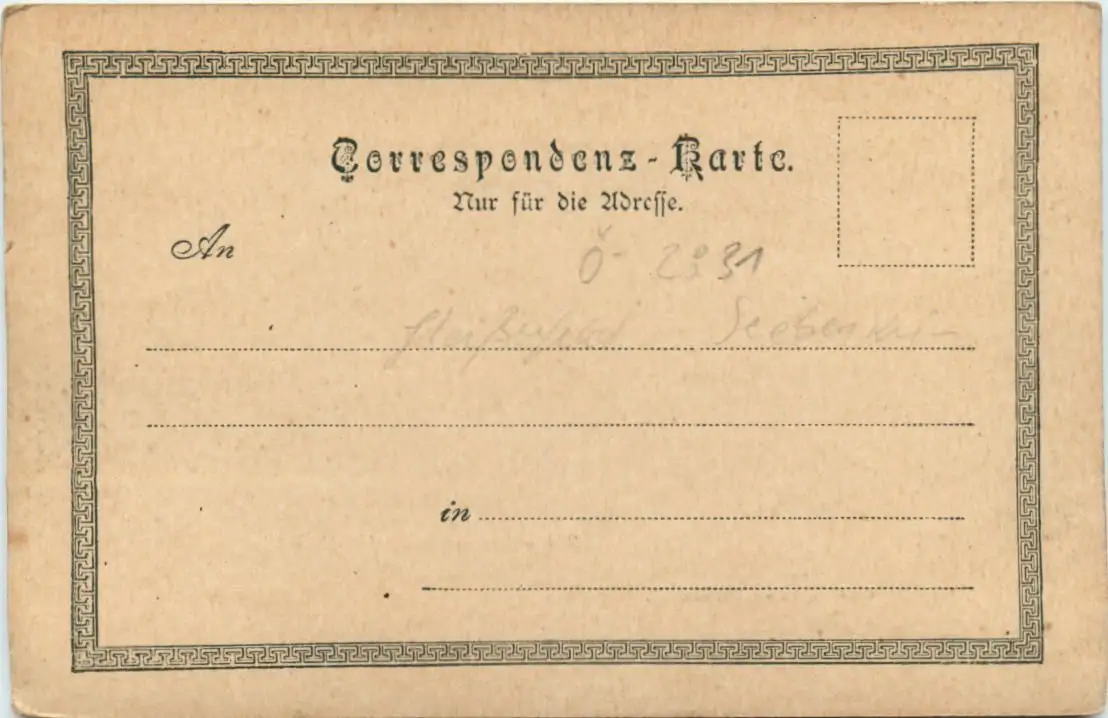 Correspondenz-Karte.
Nur für die Adresse.
An
Ö- 2931
in